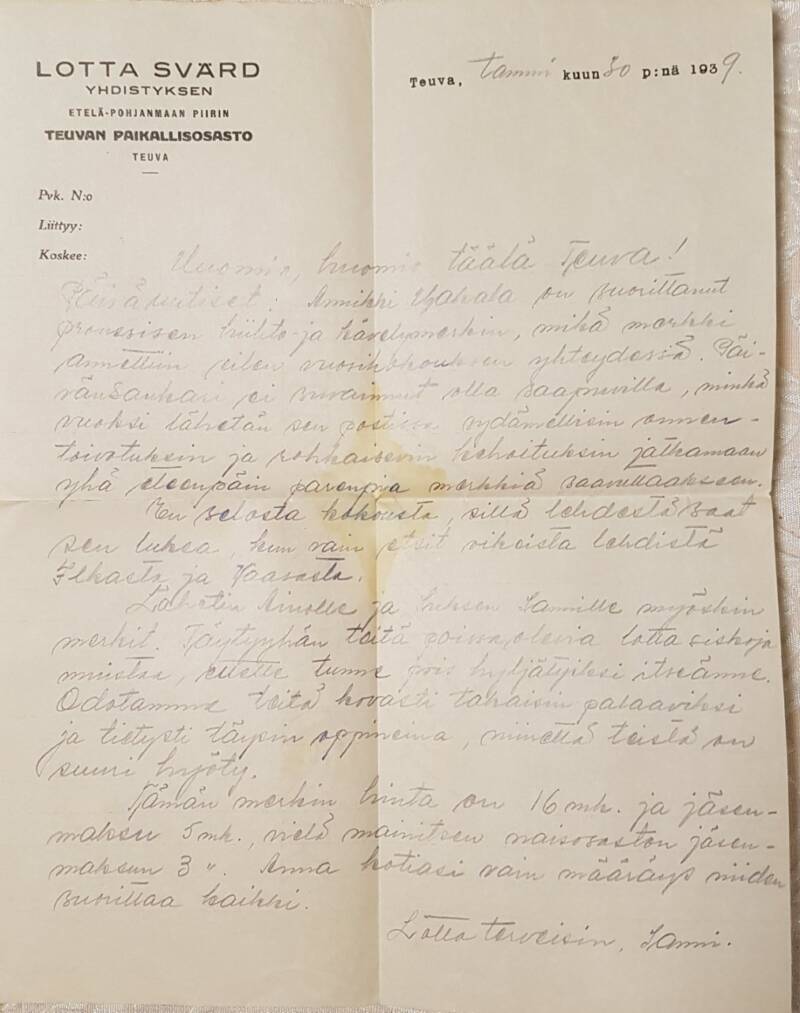 LOTTA SVÄRD
YHDISTYKSEN
ETELÄ-POHJANMAAN PIIRIN
TEUVAN PAIKALLISOSASTO
TEUVA
Teuva, tammi kuun 30 p:nä 1939.
Pvk. N:o
Liittyy:
Koskee:
Huomio, huomio täälä Teuva!
Päiväuutiset: Annikki on suorittanut
pronssisen hiihto- ja kävelymerkin, mikä merkki
annettiin eilen vuosikokouksen yhteydessä. Päi-
vänsankari ei suvainnut olla saapuvilla, minkä
vuoksi lähetän sen postissa sydämellisin onnen-
toivotuksin ja rohkaisevin kehoituksin jatkamaan
yhä eteenpäin parempia merkkiä saavuttaakseen.
En selosta kokousta, sillä lehdestä saat
sen lukea, kun vain etsit oikeista lehdistä
Ilkasta ja Vaasasta.
Lähetin Ainolle ja Sannille myöskin
merkit. Täytyyhän teitä poissaolevia lotta siskoja
muistaa, ettette tunne pois hyljätyiksi itseänne.
Odotamme teitä kovasti takaisin palaaviksi
ja tietysti täysin oppineina, niinettä teistä on
suuri hyöty.
Tämän merkin hinta on 16 mk. ja jäsen-
maksu 5 mk., vielä mainitsen naisosaston jäsen-
maksun 3 ". Anna kotiasi vain määräys niiden
suorittaa kaikki.
Lotta terveisin, Sanni.